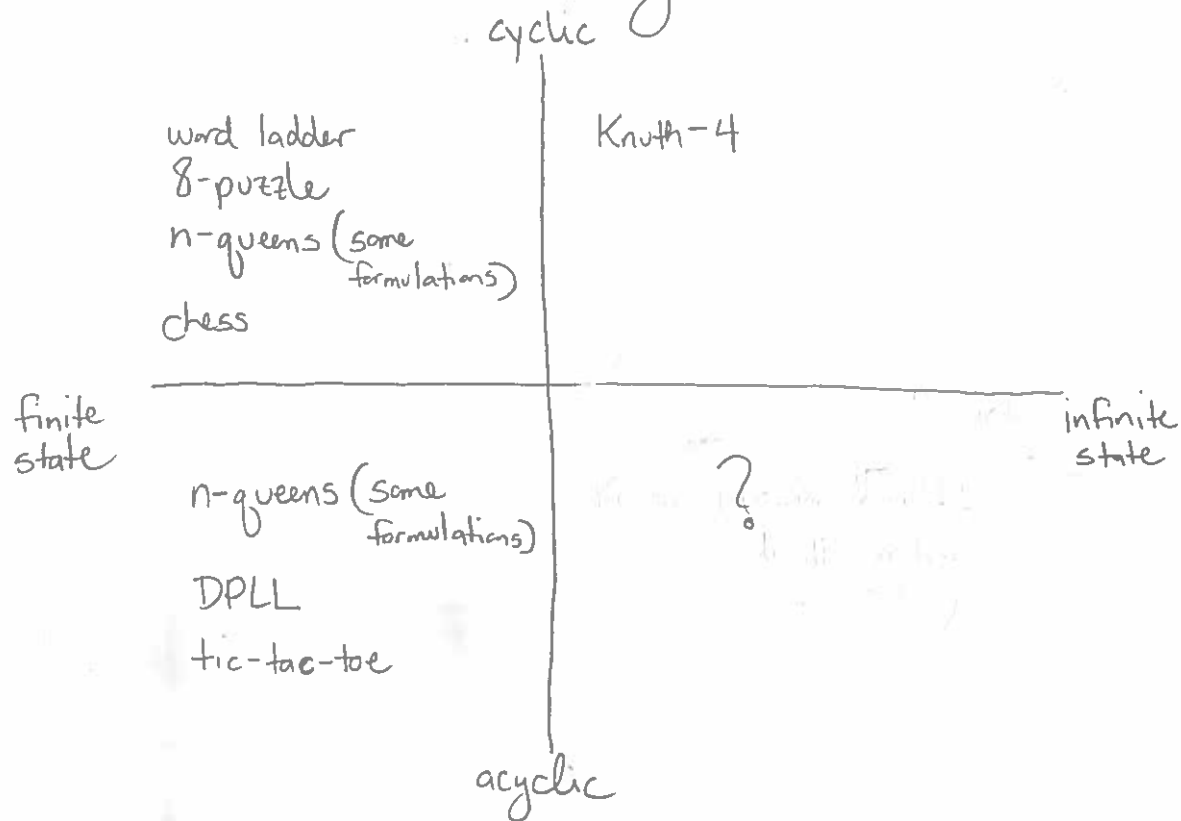 cyclic
word ladder
8-puzzle
n-queens (some
formulations)
chess
Knuth-4
finite
state
infinite
state
n-queens (some
formulations)
DPLL
tic-tac-toe
?
acyclic